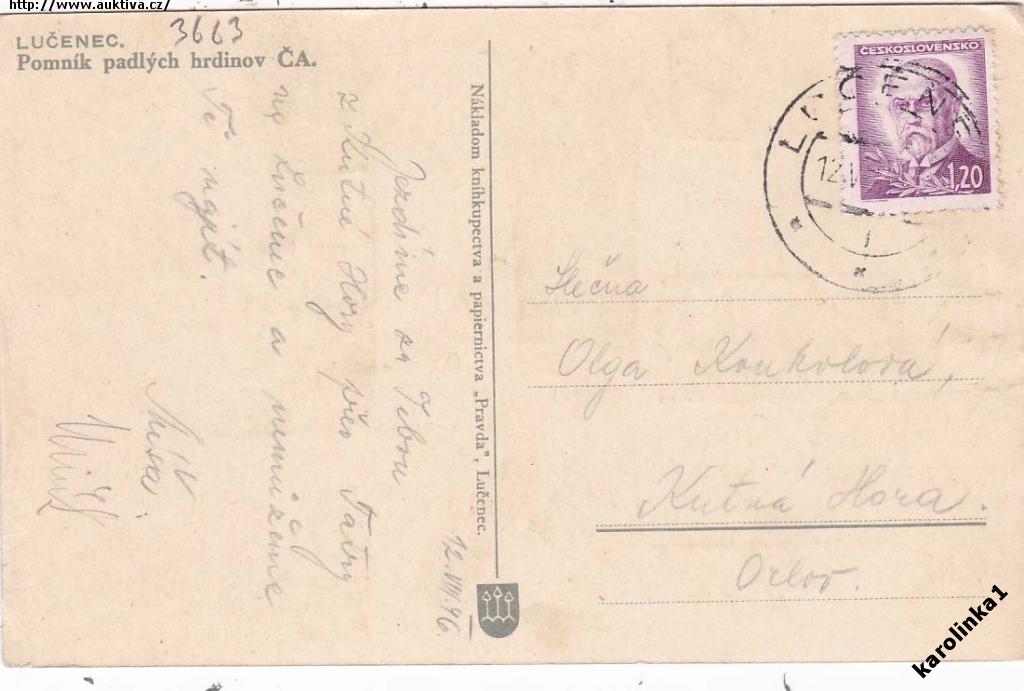 http://www.auktiva.cz/
3663
LUČENEC.
Pomník padlých hrdinov ČA.
ČESKOSLOVENSKO
1,20
LUČENEC
12.V
Nákladom kníhkupectva a papiernictva „Pravda", Lučenec.
12.VIII.46.
Jezdíme za Tebou
z Kutné Hory přes Tatry
na Lučenec a nemůžeme
Tě najít.
Míša
Slečna
Olga Koukolová,
Kutná Hora.
Orlov.
karolinka1